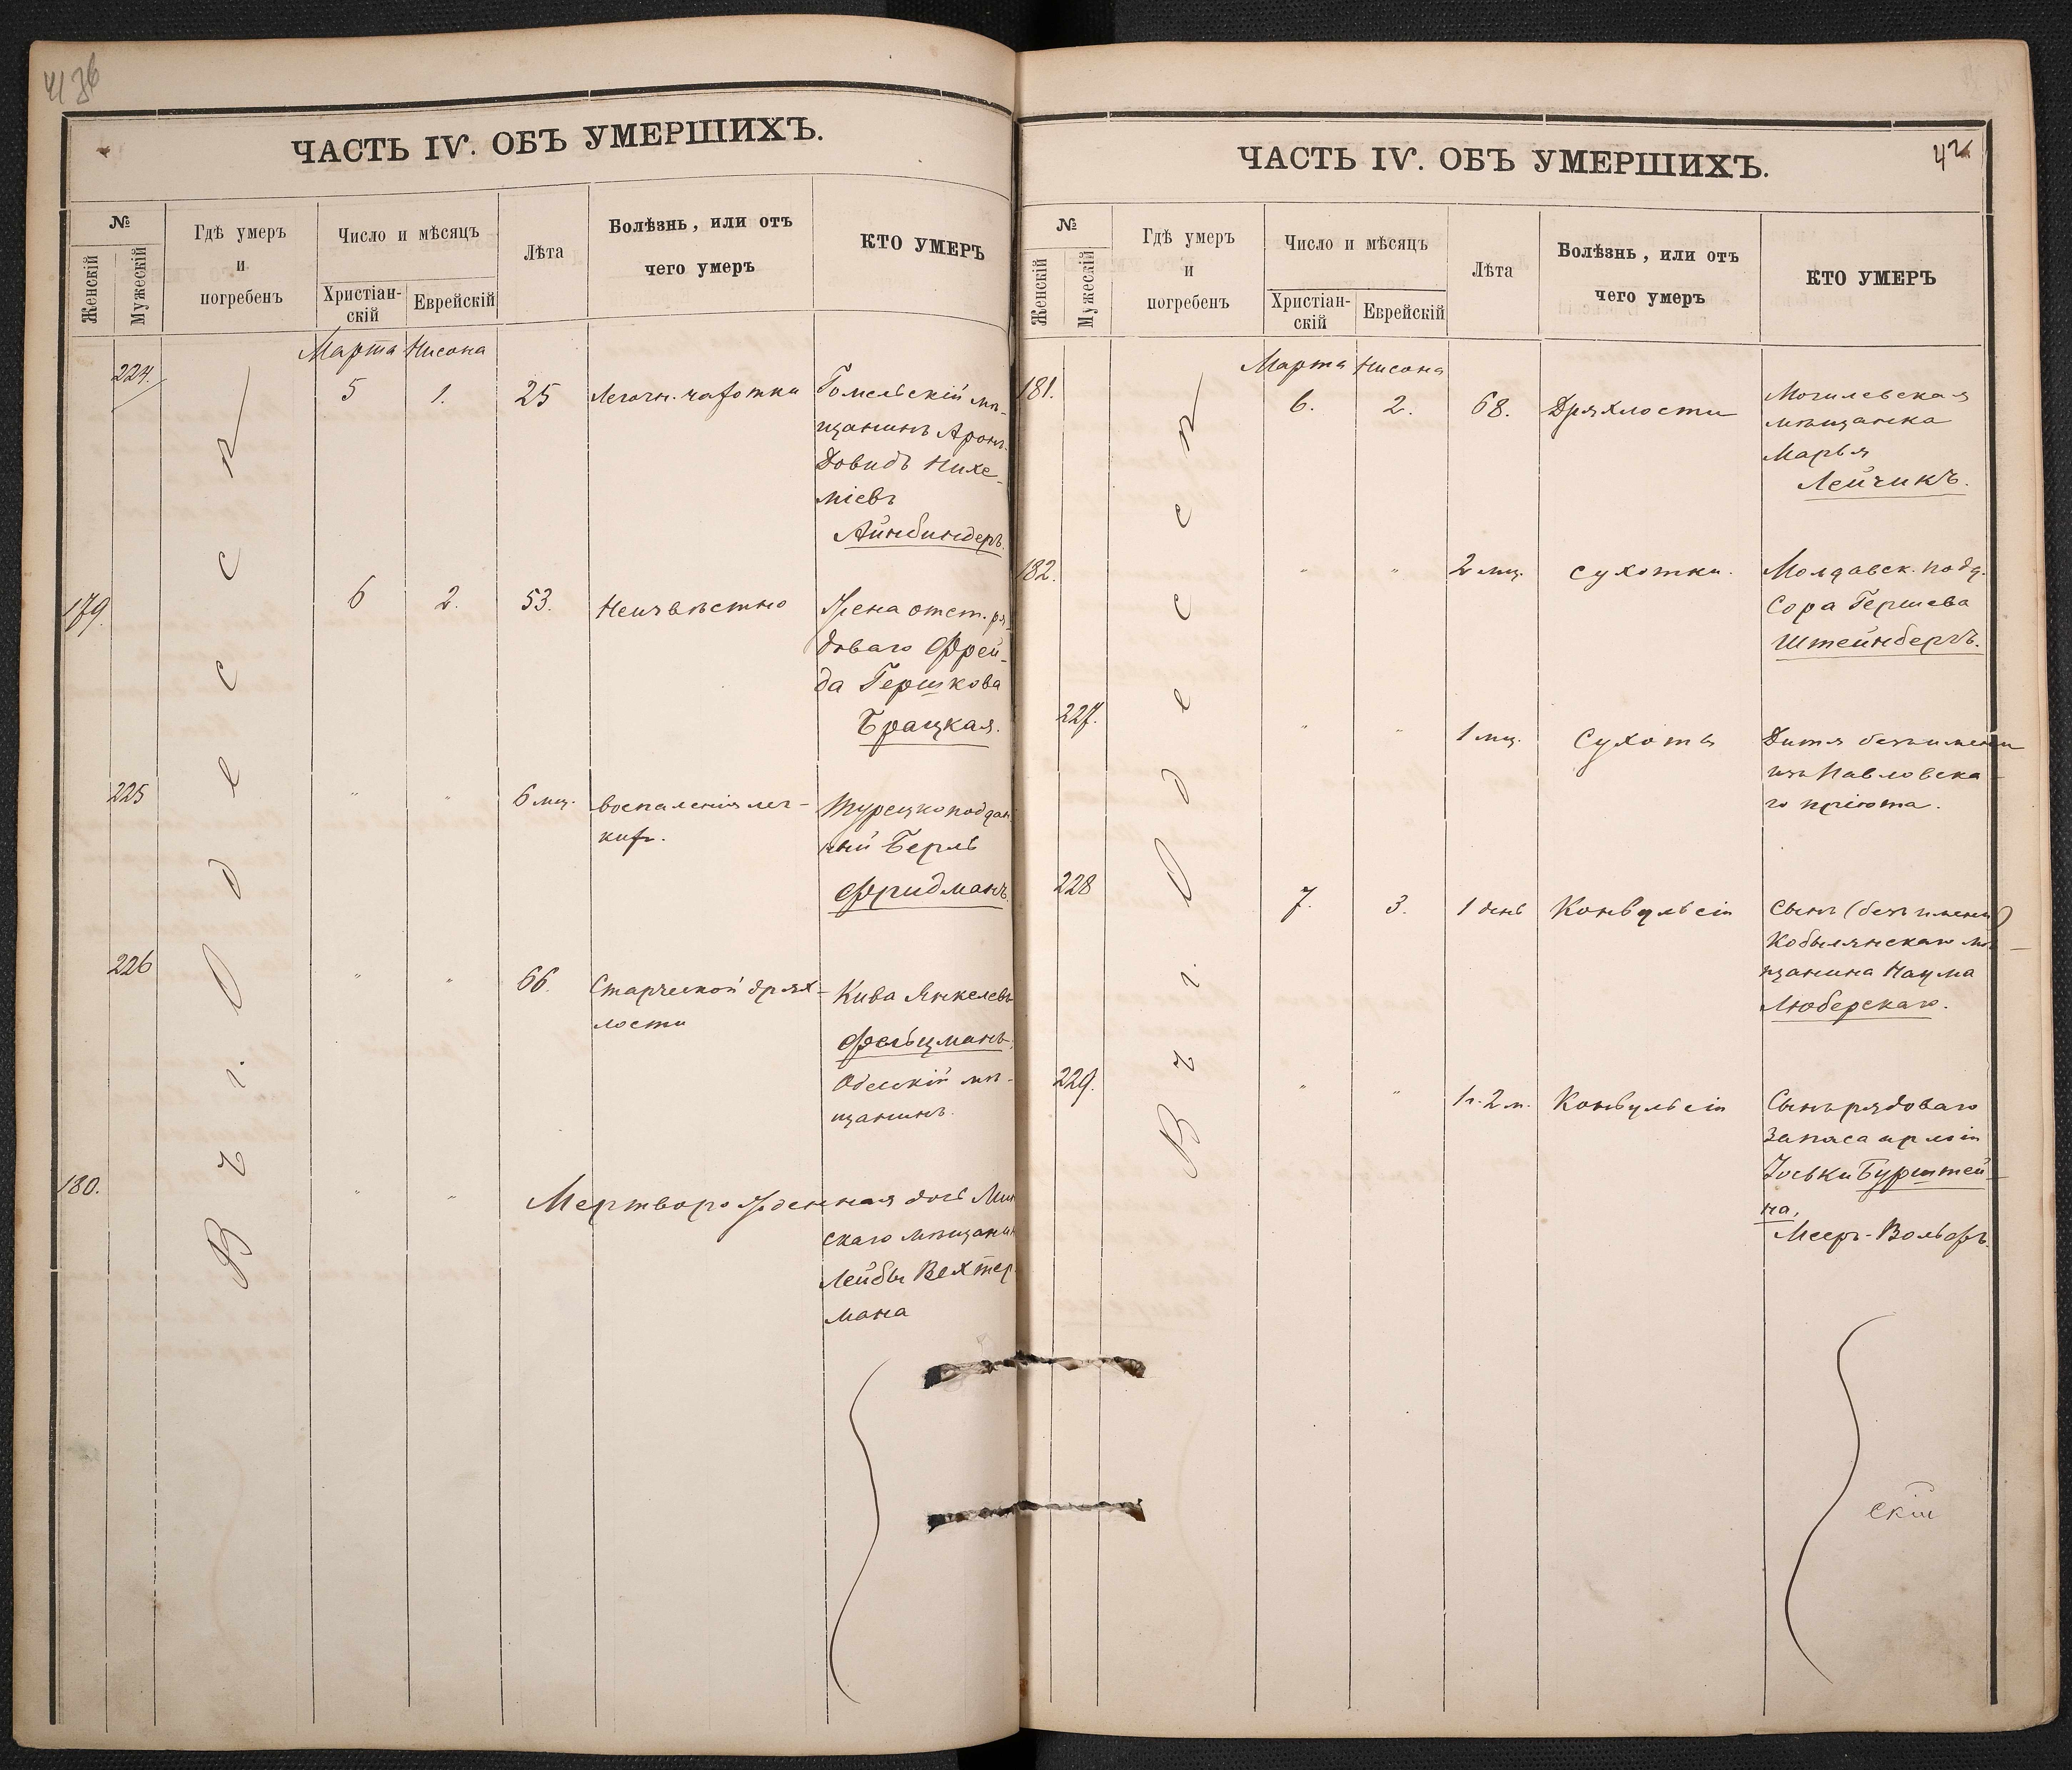 4136
ЧАСТЬ IV. ОБЪ УМЕРШИХЪ.
№
Женскій
Мужескій
Гдѣ умеръ
и
погребенъ
Число и мѣсяцъ
Христіан-
скій
Еврейскій
Лѣта
Болѣзнь, или отъ
чего умеръ
КТО УМЕРЪ
Марта Нисона
224. 5 1. 25 Легочн. чахотки Гомельскій мѣ-
щанинъ Аронъ-
Довидъ Нихе-
міевъ
Айнбиндеръ.
179. 6 2. 53. Неизвѣстно Жена отст. ря-
доваго Фрей-
да Гершкова
Брацкая.
225 " " 6 мц. воспаленія лег-
кихъ.
Турецкоподдан
ный Берль
Фридманъ.
226 " " 66. Старческой дрях-
лости
Кива Янкелевъ
Фельцманъ,
Одесскій мѣ-
щанинъ.
180. " " Мертворожденная дочь Мин
скаго мѣщанин
Лейбы Вехтер
мана
Въ г. Одессѣ
42
ЧАСТЬ IV. ОБЪ УМЕРШИХЪ.
№
Женскій
Мужескій
Гдѣ умеръ
и
погребенъ
Число и мѣсяцъ
Христіан-
скій
Еврейскій
Лѣта
Болѣзнь, или отъ
чего умеръ
КТО УМЕРЪ
Марта Нисона
181. 6. 2. 68. Дряхлости Могилевская
мѣщанка
Марья
Лейчикъ.
182. " " 2 мц. Сухотки. Молдавск. подд.
Сора Гершева
Штейнбергъ.
227. " " 1 мц. Сухоты Дитя безъимени
изъ Павловска-
го пріюта.
228 7. 3. 1 день Конвульсіи Сынъ (безъ имени)
Кобылянскаго мѣ-
щанина Наума
Люберскаго.
229. " " 1 г. 2 м. Конвульсіи Сынъ рядоваго
запаса арміи
Іоськи Бурштей-
на,
Мееръ-Вольфъ.
Въ г. Одессѣ
скій